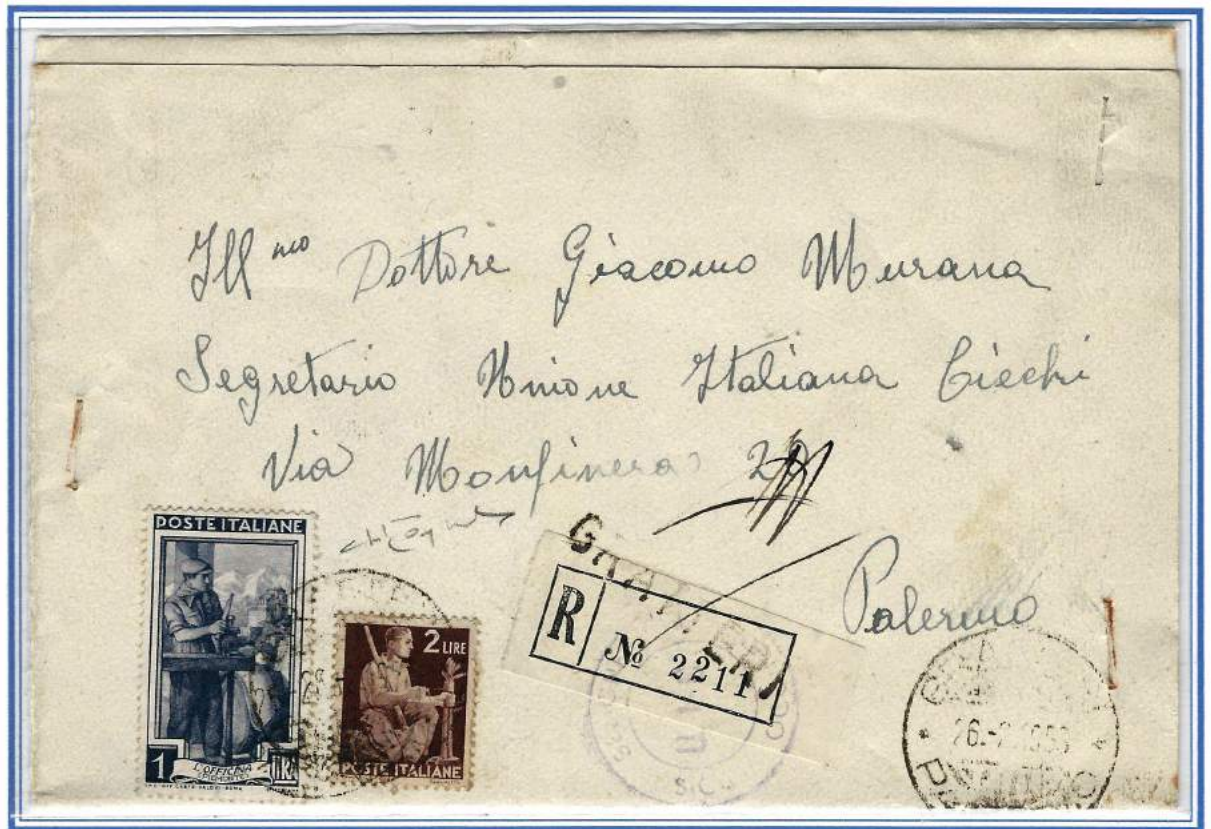 Ill mo Dottore Giacomo Murana
Segretario Unione Italiana Ciechi
Via Monfinera
Palermo
POSTE ITALIANE
1 LIRA
L'OFFICINA
2 LIRE
POSTE ITALIANE
GRATTERI
R № 2211